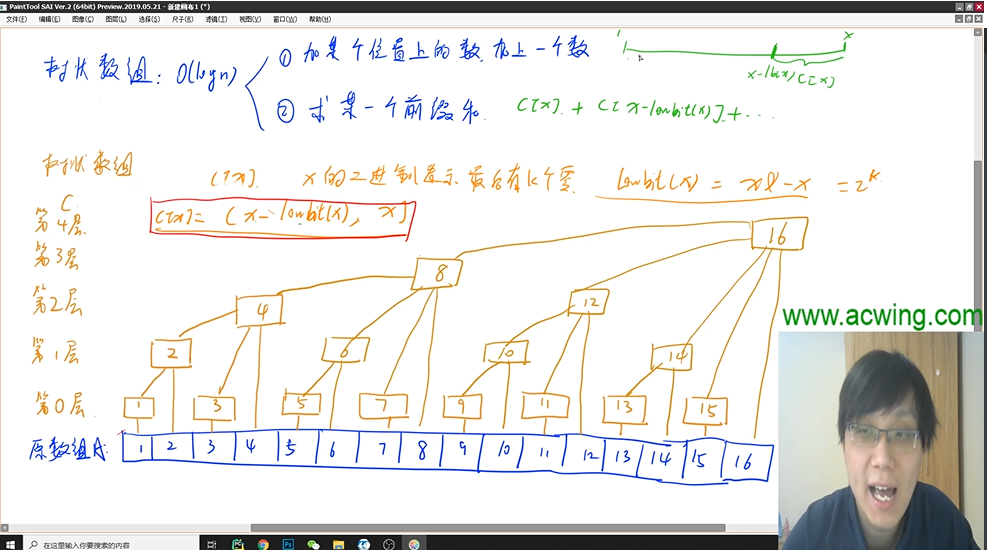 PaintTool SAI Ver.2 (64bit) Preview.2019.05.21 - 新建画布1 (*)
文件(F) 编辑(E) 图像(C) 图层(L) 选择(S) 尺子(R) 滤镜(T) 视图(V) 窗口(W) 帮助(H)
树状数组: O(logn)
① 加某个位置上的数,加上一个数
② 求某一个前缀和.
1 x
x-lb(x) C[x]
C[x] + C[x-lowbit(x)] + ...
树状数组
C[x]. x的二进制表示最后有k个零 lowbit(x) = x&-x = 2^k
C[x] = (x-lowbit(x), x]
C
第4层
第3层
第2层
第1层
第0层
16
8
4 12
2 6 10 14
1 3 5 7 9 11 13 15
原数组A:
1 2 3 4 5 6 7 8 9 10 11 12 13 14 15 16
www.acwing.com
在这里输入你要搜索的内容